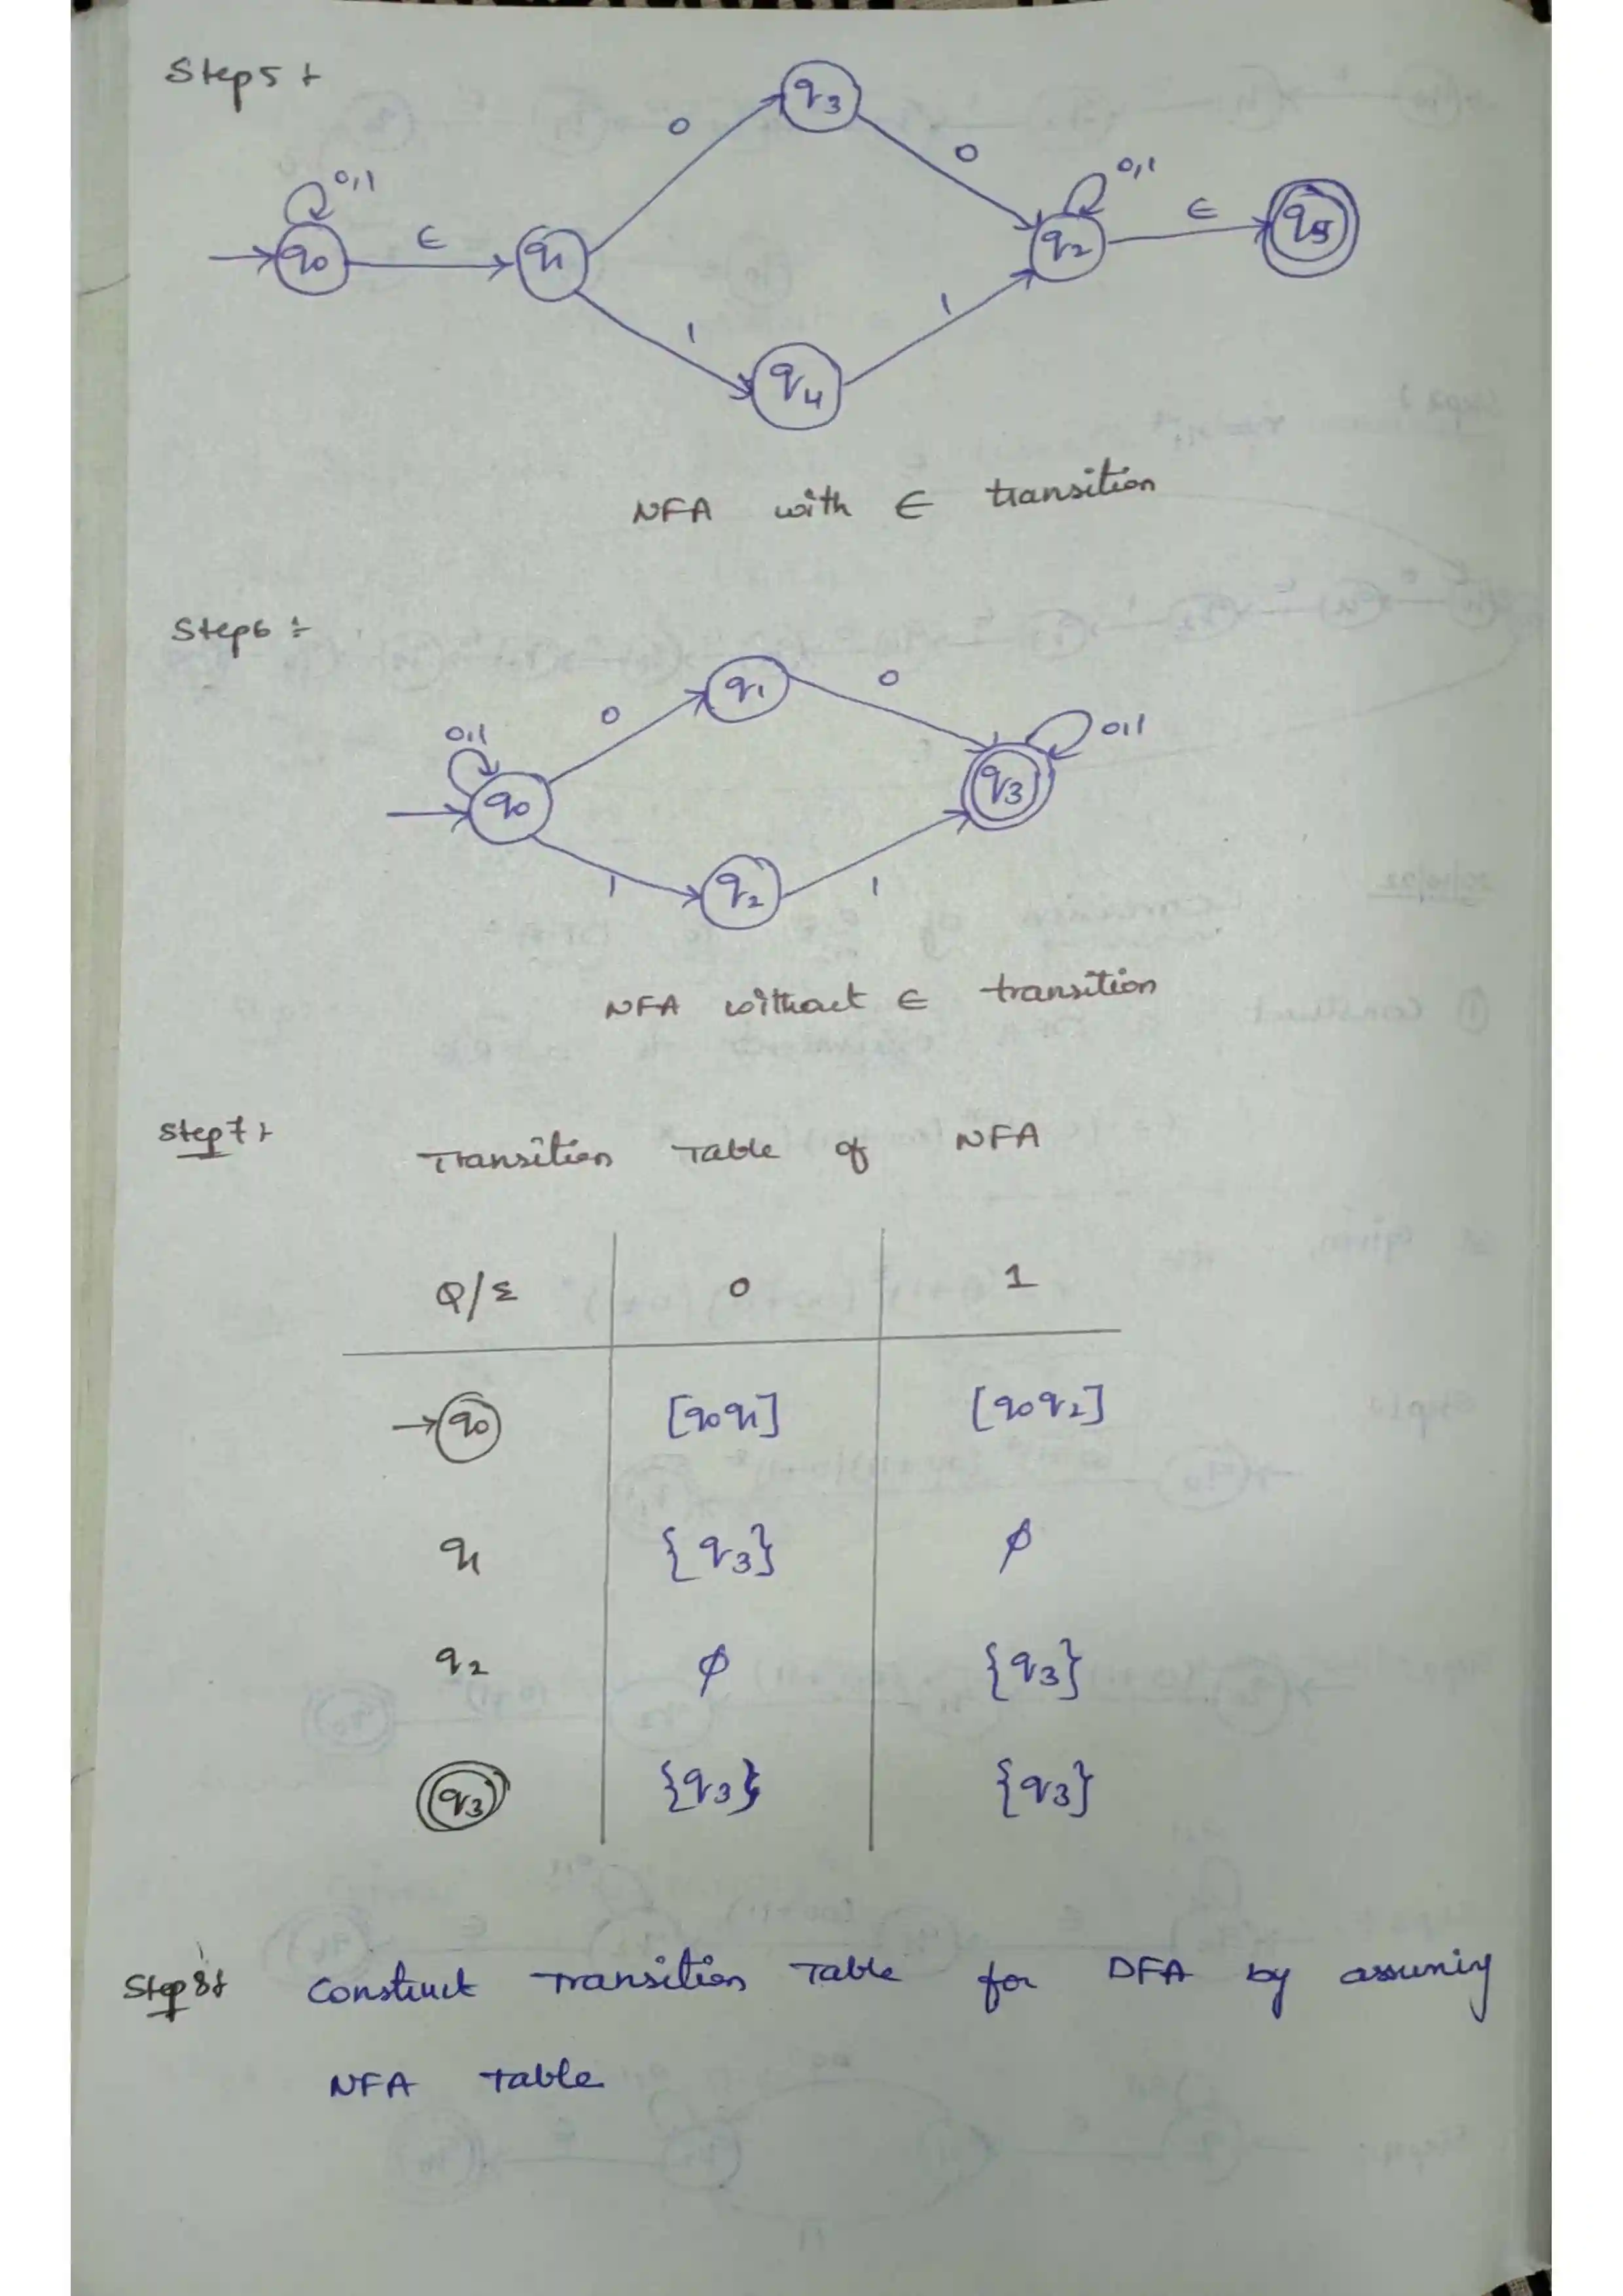 Step5 :
q3
0
0
0,1
0,1
q0
ϵ
q1
q2
ϵ
q5
1
1
q4
NFA with ϵ transition
Step6 :
q1
0
0
0,1
0,1
q0
q3
1
q2
1
NFA without ϵ transition
Step7 :
Transition Table of NFA
Q/Σ 0 1
→ q0 [q0q1] [q0q2]
q1 {q3} ϕ
q2 ϕ {q3}
q3 {q3} {q3}
Step 8 : Construct Transition Table for DFA by assuming
NFA Table